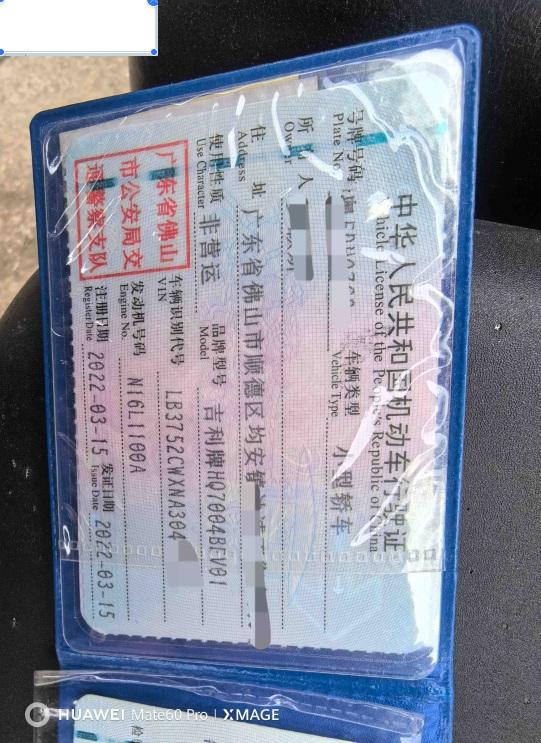 中华人民共和国机动车行驶证
Vehicle License of the People's Republic of China
号牌号码
Plate No.
车辆类型 小型轿车
Vehicle Type
所 人
Owner
住 址 广东省佛山市顺德区均安
Address
使用性质 非营运
Use Character
品牌型号 吉利牌HQ7004BEV01
Model
广东省佛山
市公安局交
通警察支队
车辆识别代号 LB3752CWXNA304
VIN
发动机号码 N16L1100A
Engine No.
注册日期 2022-03-15 发证日期 2022-03-15
Register Date Issue Date
HUAWEI Mate60 Pro | XMAGE